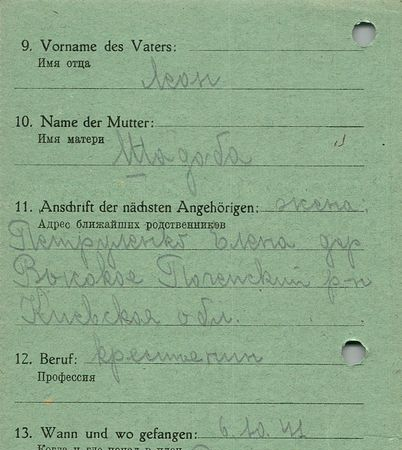 9. Vorname des Vaters:
Имя отца
Леон
10. Name der Mutter:
Имя матери
11. Anschrift der nächsten Angehörigen: жена
Адрес ближайших родственников
Петруленко Елена дер
Высокое р-н
Киевская обл.
12. Beruf: крестьянин
Профессия
13. Wann und wo gefangen: 6.10.41